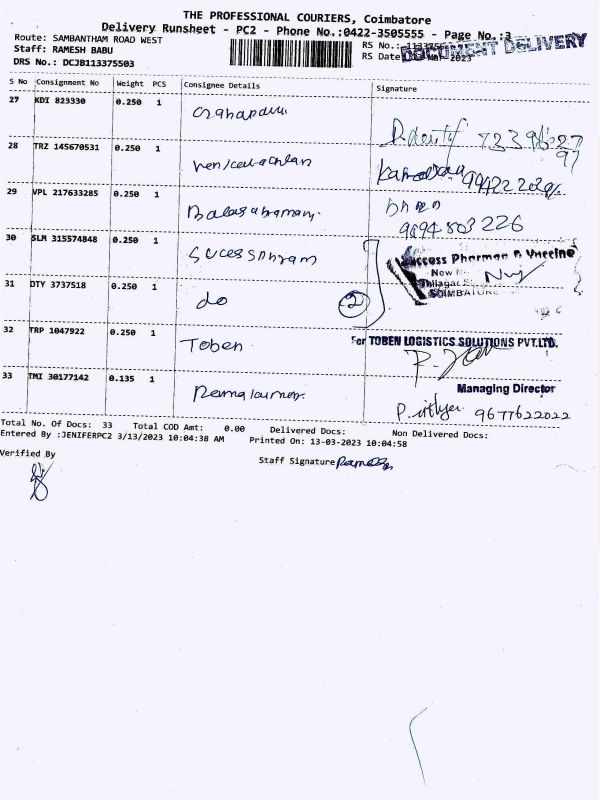 THE PROFESSIONAL COURIERS, Coimbatore
Delivery Runsheet - PC2 - Phone No.:0422-3505555 - Page No.:3
Route: SAMBANTHAM ROAD WEST
RS No.:
DOCUMENT DELIVERY
Staff: RAMESH BABU
RS Date
Mar-2023
DRS No.: DCJB113375503
S No Consignment No Weight PCS Consignee Details Signature
27 KDI 823330 0.250 1
28 TRZ 145670531 0.250 1 Venkatachalam
29 VPL 217633285 0.250 1 Balasubramani
9894 803 226
30 SLM 315574848 0.250 1
Success Pharman & Vaccine
New
Thilagar
COIMBATORE
31 DTY 3737518 0.250 1 do 2
32 TRP 1047922 0.250 1 Toben
For TOBEN LOGISTICS SOLUTIONS PVT.LTD.
Managing Director
33 TMI 30177142 0.135 1
9677622022
Total No. Of Docs: 33 Total COD Amt: 0.00 Delivered Docs: Non Delivered Docs:
Entered By :JENIFERPC2 3/13/2023 10:04:38 AM Printed On: 13-03-2023 10:04:58
Verified By
Staff Signature Ramesh